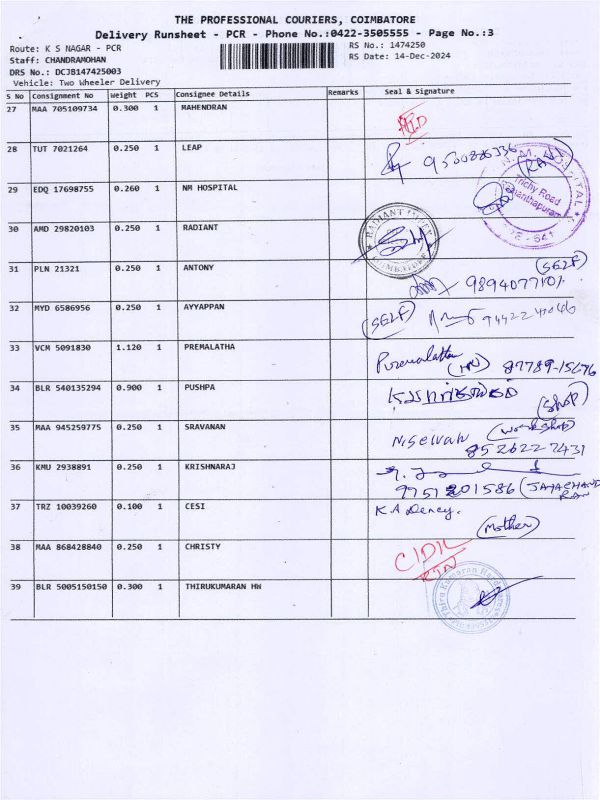 THE PROFESSIONAL COURIERS, COIMBATORE
Delivery Runsheet - PCR - Phone No.:0422-3505555 - Page No.:3
Route: K S NAGAR - PCR
RS No.: 1474250
Staff: CHANDRAMOHAN
RS Date: 14-Dec-2024
DRS No.: DCJB147425003
Vehicle: Two Wheeler Delivery
S No Consignment No Weight PCS Consignee Details Remarks Seal & Signature
27 MAA 705109734 0.300 1 MAHENDRAN
28 TUT 7021264 0.250 1 LEAP
9500826336
(RAN)
29 EDQ 17698755 0.260 1 NM HOSPITAL
N.M. HOSPITAL
Trichy Road
30 AMD 29820103 0.250 1 RADIANT
RADIANT
COIMBATORE
31 PLN 21321 0.250 1 ANTONY
(SELF)
32 MYD 6586956 0.250 1 AYYAPPAN
(SELF)
33 VCM 5091830 1.120 1 PREMALATHA
87789-15676
34 BLR 540135294 0.900 1 PUSHPA
(SHOP)
35 MAA 945259775 0.250 1 SRAVANAN
(workshop)
8526227431
36 KMU 2938891 0.250 1 KRISHNARAJ
9951201586 (JAYACHAND
RAN
37 TRZ 10039260 0.100 1 CESI
K.A Dency.
(Mother)
38 MAA 868428840 0.250 1 CHRISTY
C/DIL
RTN
39 BLR 5005150150 0.300 1 THIRUKUMARAN HW
Thiru Kumaran Hardwares